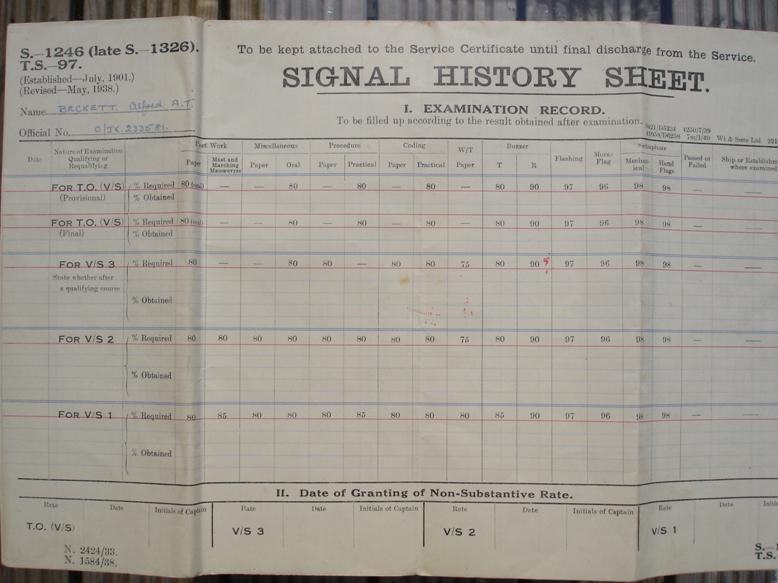 S.—1246 (late S.—1326).
T.S.—97.
(Established—July, 1901.)
(Revised—May, 1938.)
Name BECKETT. Alfred A.T.
Official No.
To be kept attached to the Service Certificate until final discharge from the Service.
SIGNAL HISTORY SHEET.
I. EXAMINATION RECORD.
To be filled up according to the result obtained after examination.
Wt & Sons Ltd
Date Nature of Examination Qualifying or Requalifying Work Miscellaneous Procedure Coding W/T Buzzer Flashing Morse Flag Passed or Failed Ship or Establishment where examined
Paper Meet and Marching Manœuvres Paper Oral Paper Practical Paper Practical Paper T R Hand Flags
FOR T.O. (V/S) % Required 80 (oral) — — 80 — 80 — 80 — 80 90 97 96 98 98 — —
(Provisional) % Obtained
FOR T.O. (V/S) % Required 80 (oral) — — 80 — 80 — 80 — 80 90 97 96 98 98 — —
(Final) % Obtained
FOR V/S 3 % Required 80 — — 80 80 — 80 80 75 80 90 97 96 98 98 — —
State whether after
a qualifying course
% Obtained
FOR V/S 2 % Required 80 80 80 80 80 80 80 80 75 80 90 97 96 98 98 — —
% Obtained
FOR V/S 1 % Required 80 85 80 80 80 85 80 80 80 85 90 97 96 98 98 — —
% Obtained
II. Date of Granting of Non-Substantive Rate.
Rate Date Initials of Captain Rate Date Initials of Captain Rate Date Initials of Captain Rate Date
T.O. (V/S) V/S 3 V/S 2 V/S 1
N. 2424/33.
N. 1584/38.